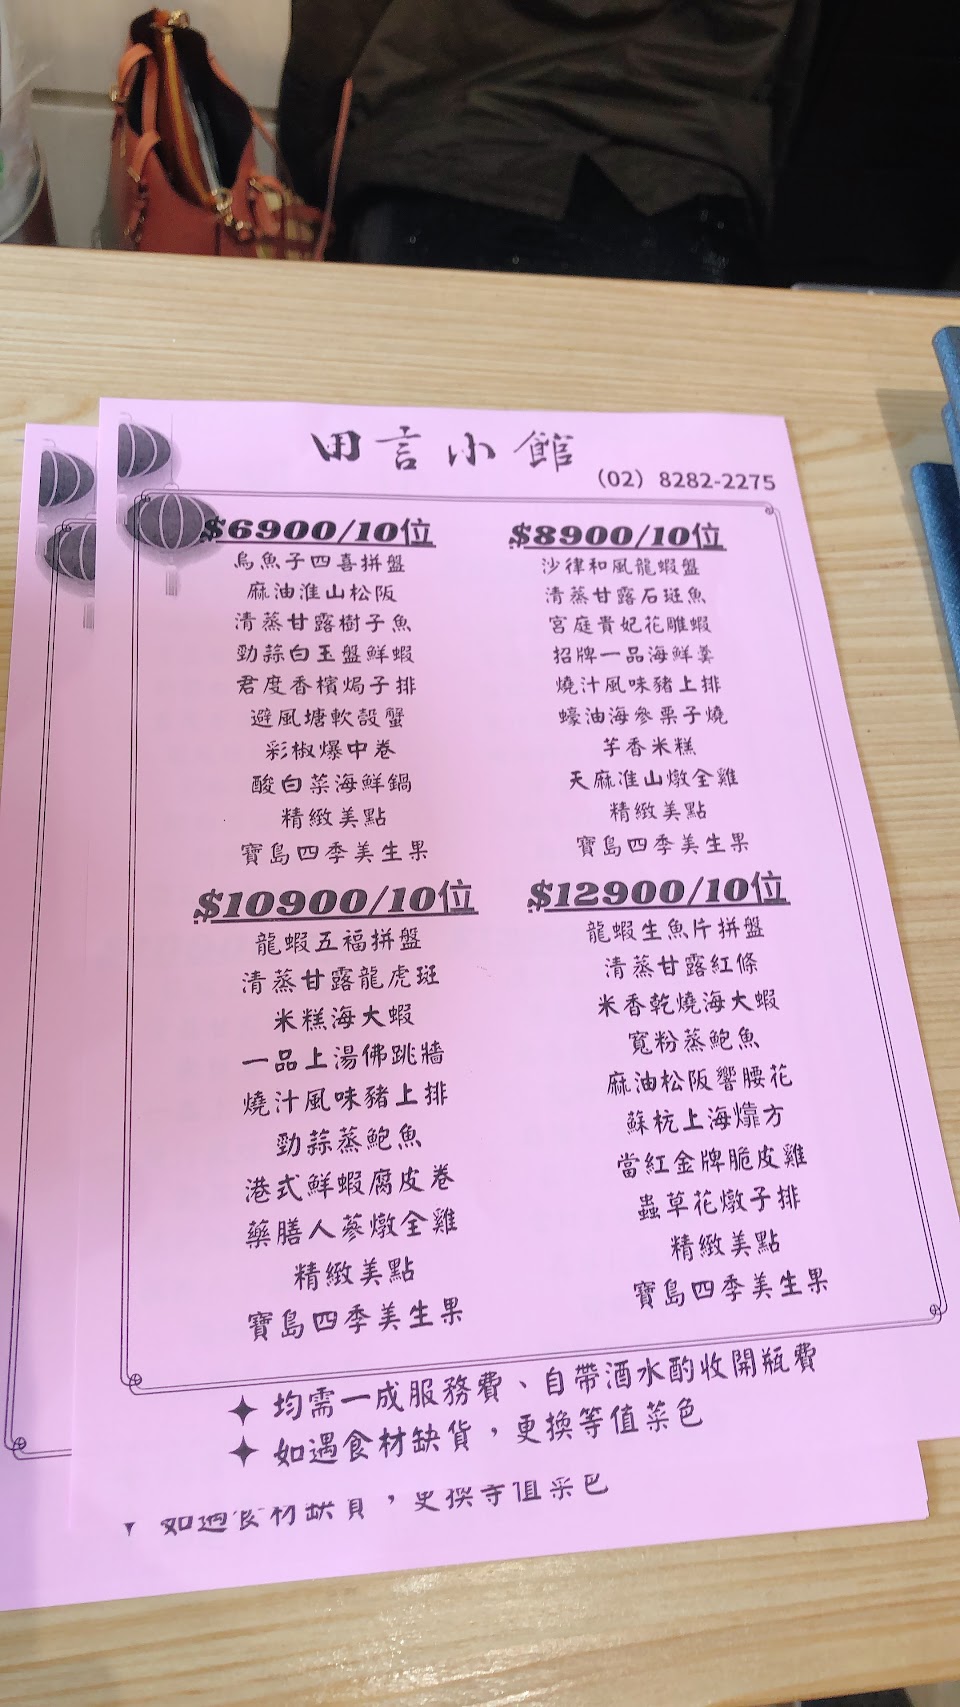 田言小館
(02) 8282-2275
$6900/10位
烏魚子四喜拼盤
麻油淮山松阪
清蒸甘露樹子魚
勁蒜白玉盤鮮蝦
君度香檳焗子排
避風塘軟殼蟹
彩椒爆中卷
酸白菜海鮮鍋
精緻美點
寶島四季美生果
$8900/10位
沙律和風龍蝦盤
清蒸甘露石斑魚
宮庭貴妃花雕蝦
招牌一品海鮮羹
燒汁風味豬上排
蠔油海參栗子燒
芋香米糕
天麻淮山燉全雞
精緻美點
寶島四季美生果
$10900/10位
龍蝦五福拼盤
清蒸甘露龍虎斑
米糕海大蝦
一品上湯佛跳牆
燒汁風味豬上排
勁蒜蒸鮑魚
港式鮮蝦腐皮卷
藥膳人蔘燉全雞
精緻美點
寶島四季美生果
$12900/10位
龍蝦生魚片拼盤
清蒸甘露紅條
米香乾燒海大蝦
寬粉蒸鮑魚
麻油松阪響腰花
蘇杭上海㸆方
當紅金牌脆皮雞
蟲草花燉子排
精緻美點
寶島四季美生果
✦ 均需一成服務費、自帶酒水酌收開瓶費
✦ 如遇食材缺貨，更換等值菜色
如遇食材缺貨，更換等值菜色